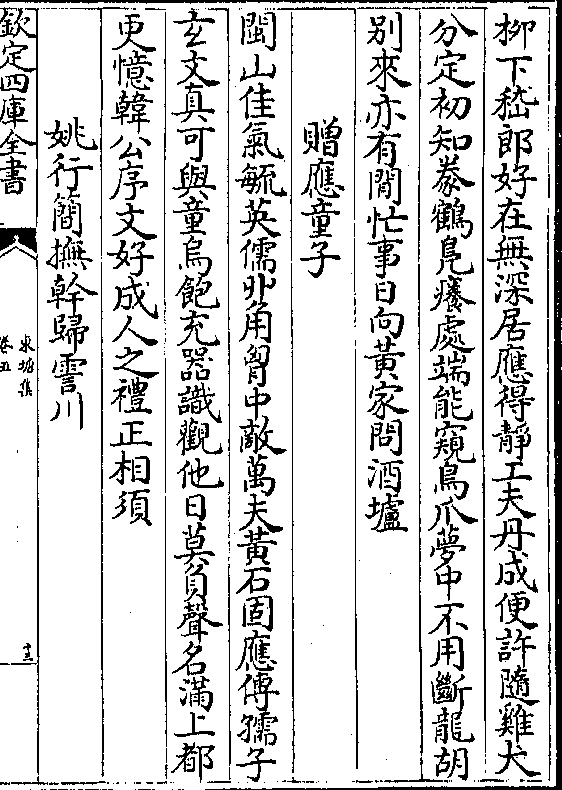 柳下嵇郎好在無深居應得靜工夫丹成便許隨雞犬
分定初知豢鶴鳧癢處端能窺鳥爪夢中不用斷龍胡
别來亦有閒忙事日向黃家問酒壚
贈應童子
閩山佳氣毓英儒丱角胷中敵萬夫黃石固應傳孺子
玄文真可與童烏飽充器識觀他日莫負聲名滿上都
更憶韓公序文好成人之禮正相須
姚行簡撫幹歸霅川
欽定四庫全書
東塘集
卷五
十三